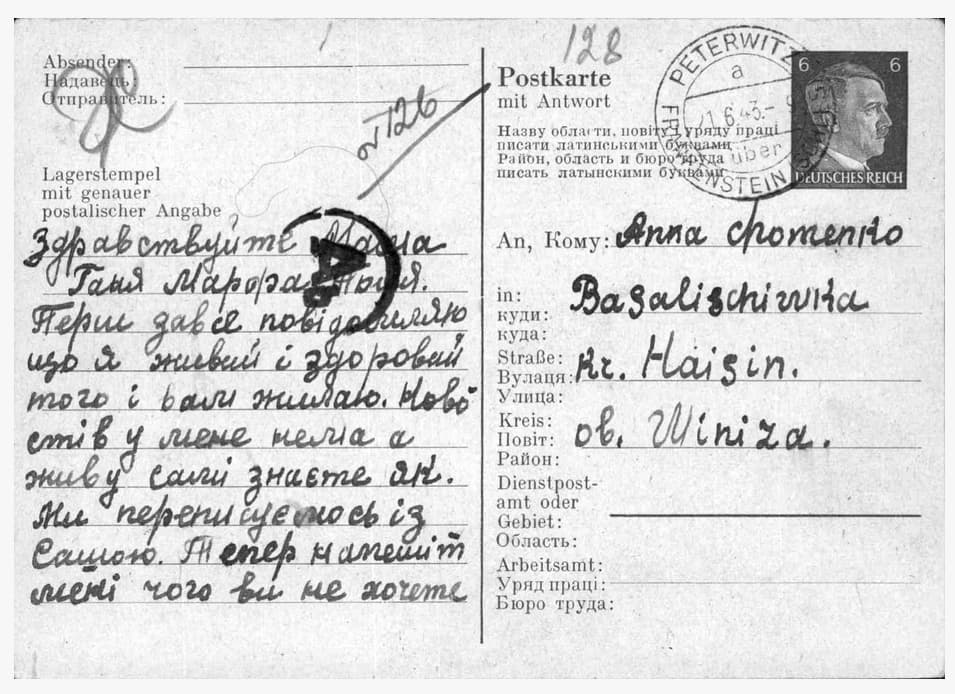 Absender:
Надавець:
Отправитель:
Lagerstempel
mit genauer
postalischer Angabe
№126
Здравствуйте Маша
Ганя
Перш за все повідомляю
що я живий і здоровий
того і вам жилаю. Ново
стів у мене нема а
живу самі знаєте як.
Ми переписуємось із
Сашою. Тепер напешіт
мені чого ви не хочете
128
Postkarte
mit Antwort
Назву области, повіту і уряду праці
писати латинськими буквами
Район, область и бюро труда
писать латынскими буквами
PETERWITZ
a
21.6.43.
über
FRANKENSTEIN
6 6
DEUTSCHES REICH
An, Кому: Anna Chomenko
in:
куди:
куда:
Basalischiwka
Straße:
Вулаця:
Улица:
kr. Haisin.
Kreis:
Повіт:
Район:
ob. Winiza.
Dienstpost-
amt oder
Gebiet:
Область:
Arbeitsamt:
Уряд праці:
Бюро труда: